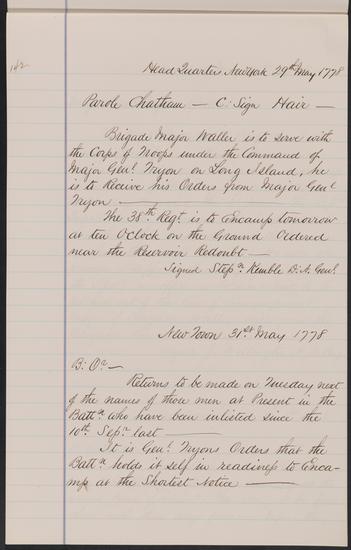 142
Head Quarters New York 29th May 1778
Parole Chatham — C: Sign Hair —
Brigade Major Waller is to serve with
the Corps of Troops under the Command of
Major Genl. Tryon on Long Island, he
is to Recive his Orders from Major Genl
Tryon —
The 38th. Regt. is to Encamp tomorrow
at ten OClock on the Ground Ordered
near the Reservoir Redoubt —
Signed Stepn. Kemble D: A. Genl.
New Town 31st May 1778
B: Or —
Returns to be made on Tuesday next
of the names of those men at Present in the
Battn. who have been inlisted since the
10th. Sepr. last —
It is Genl. Tryons Orders that the
Battn. holds it self in readiness to Enca-
mp at the Shortest Notice —